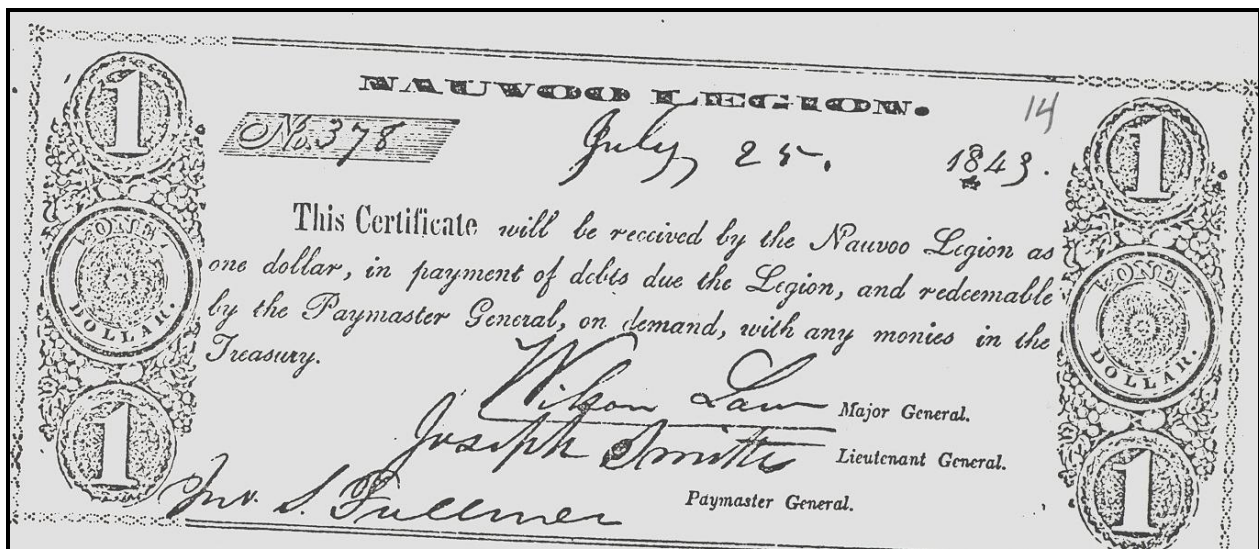 1
1
NAUVOO LEGION.
14
No. 378
July, 25. 1843.
This Certificate will be received by the Nauvoo Legion as
one dollar, in payment of debts due the Legion, and redeemable
by the Paymaster General, on demand, with any monies in the
Treasury.
ONE
DOLLAR.
ONE
DOLLAR.
Wilson Law Major General.
Joseph Smith Lieutenant General.
Jno. S. Fullmer Paymaster General.
1
1